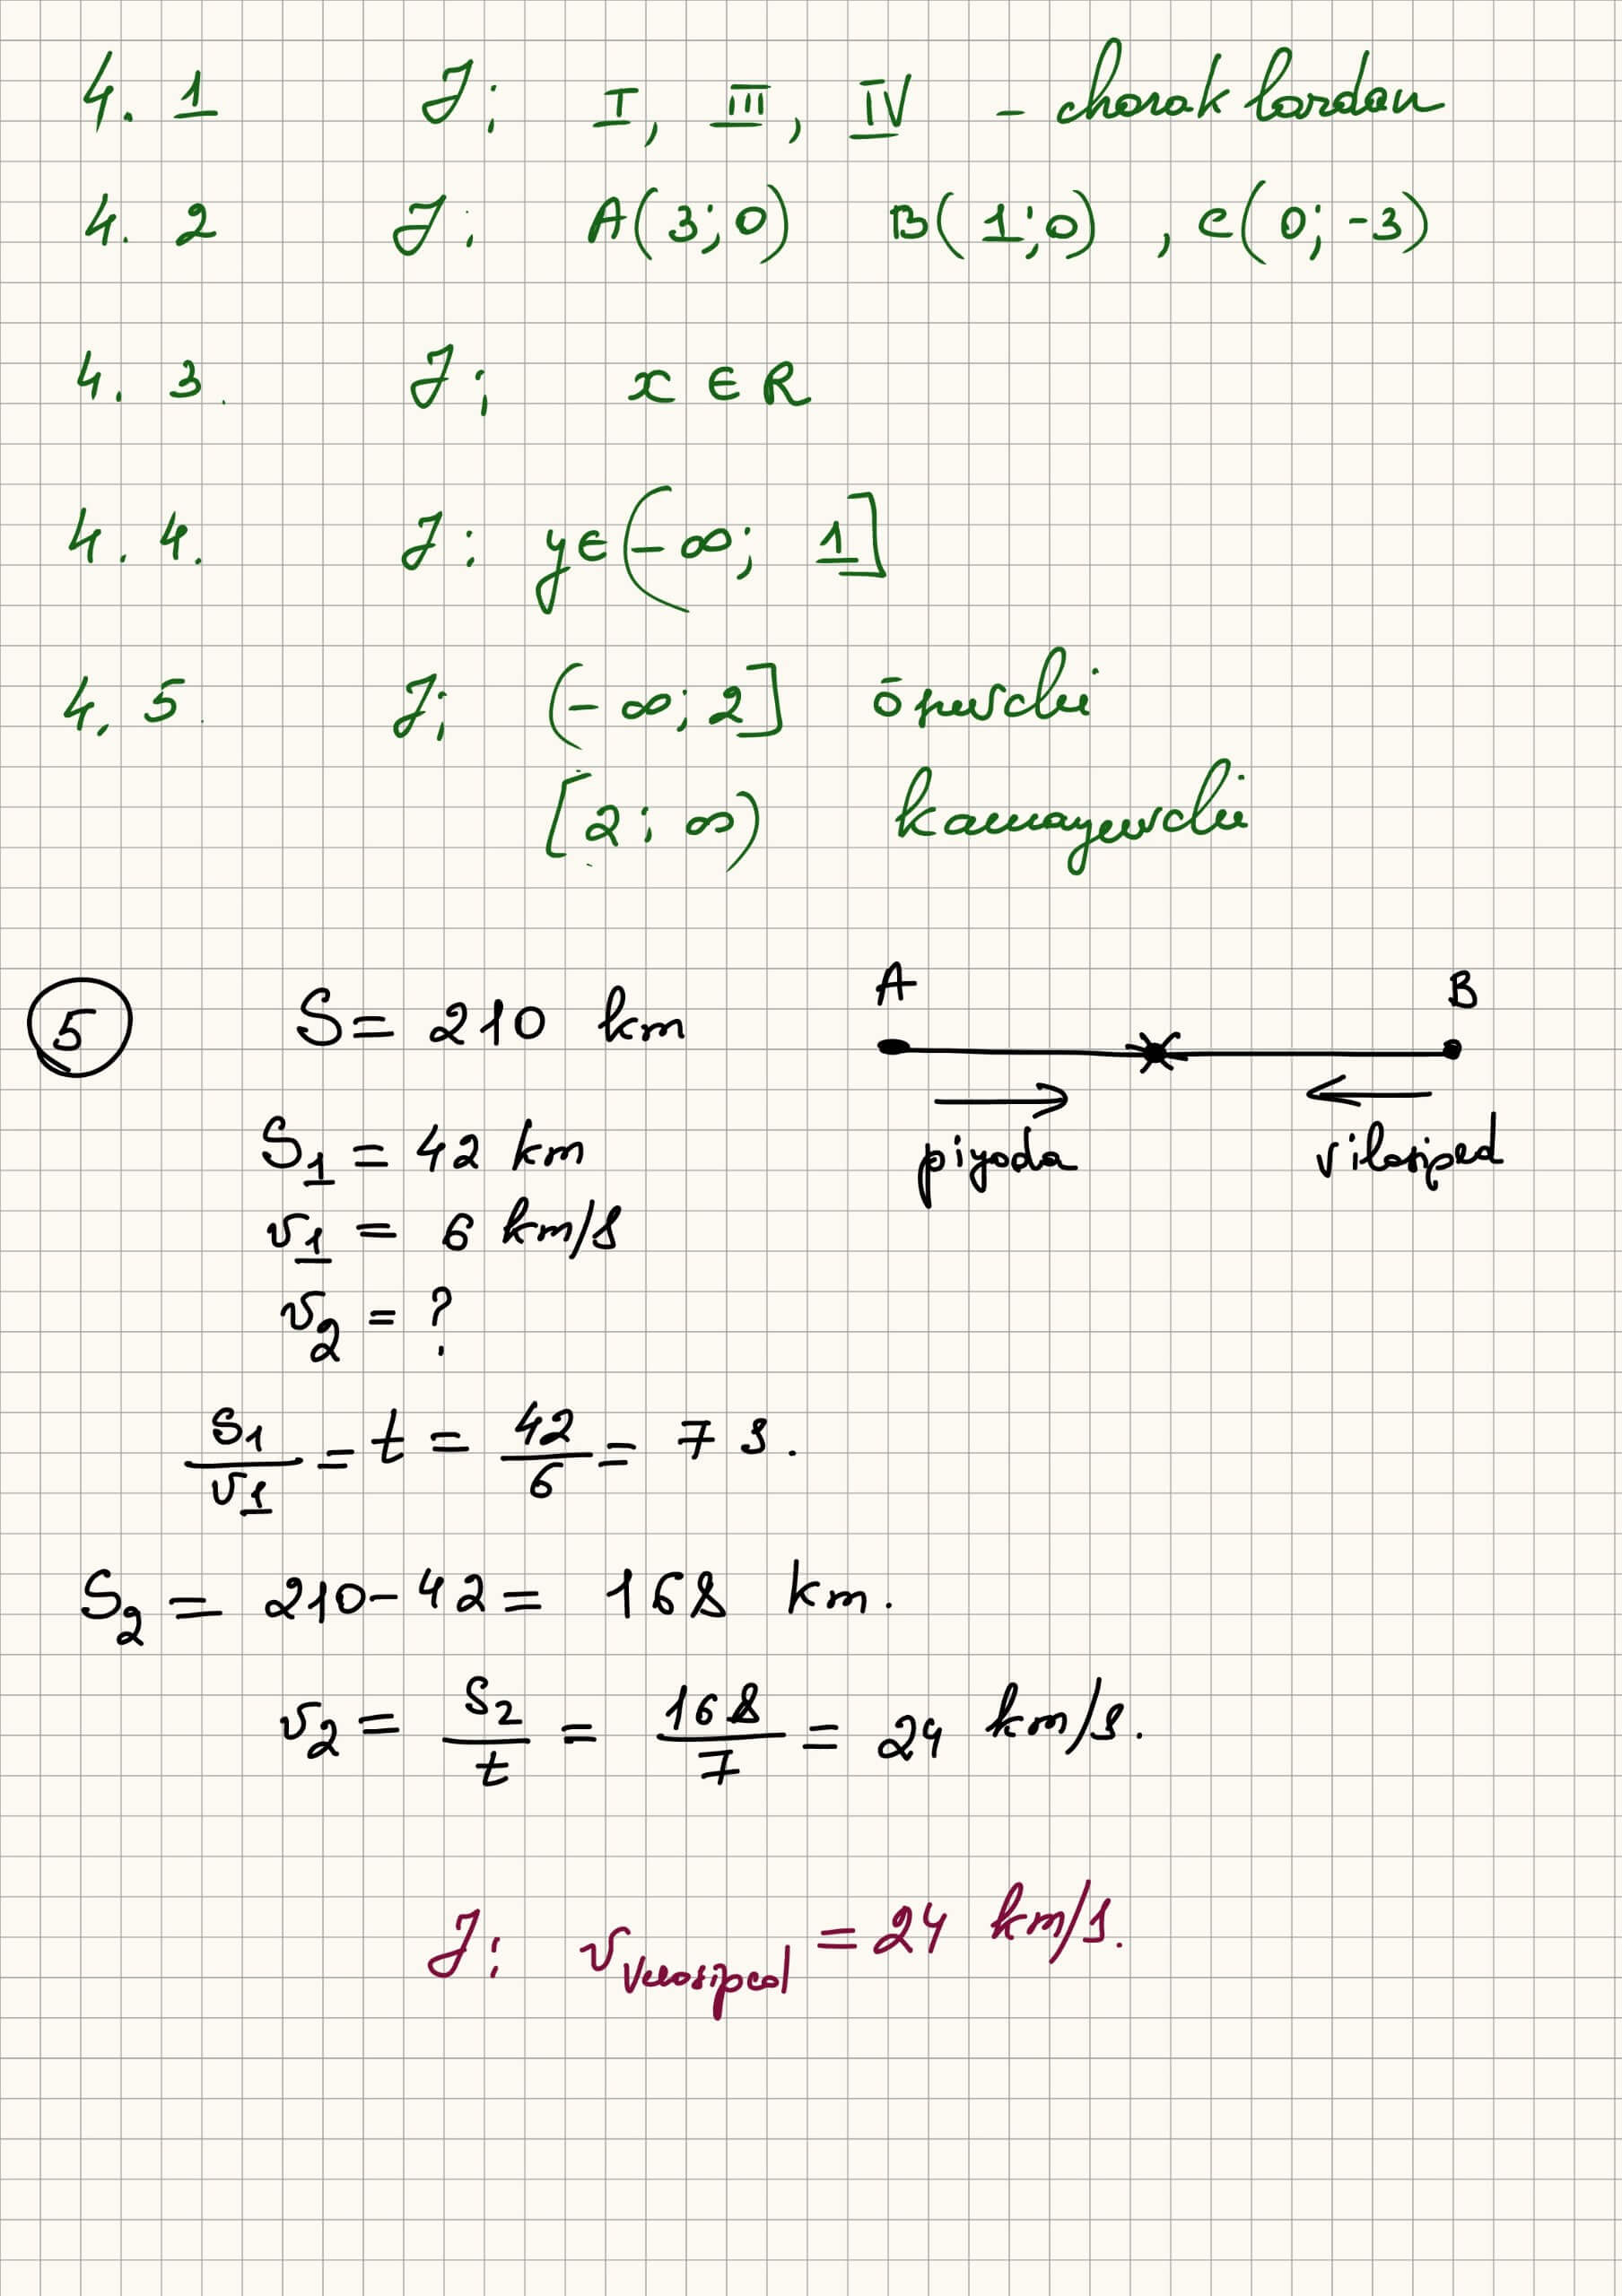 4. 1 J: I, III, IV - chorak lardan
4. 2 J: A(3;0) B(1;0) , C(0; -3)
4. 3. J: x ∈ R
4. 4. J: y∈(-∞; 1]
4. 5. J: (-∞; 2] ōsuvchi
[2; ∞) kamayuvchi
5 S = 210 km
A B
S1 = 42 km
piyoda vilosiped
v1 = 6 km/s
v2 = ?
S1/v1 = t = 42/6 = 7 s.
S2 = 210-42 = 168 km.
v2 = S2/t = 168/7 = 24 km/s.
J: v velosiped = 24 km/s.